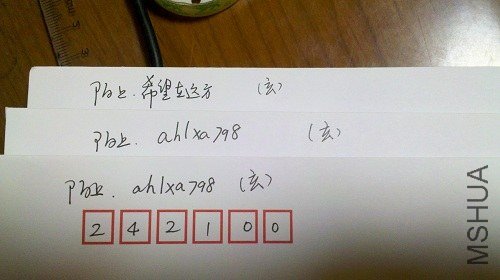 阳上.希望在远方 (亥)
阳上. ahlxa798 (亥)
阳上. ahlxa798 (亥)
2 4 2 1 0 0
MSHUA